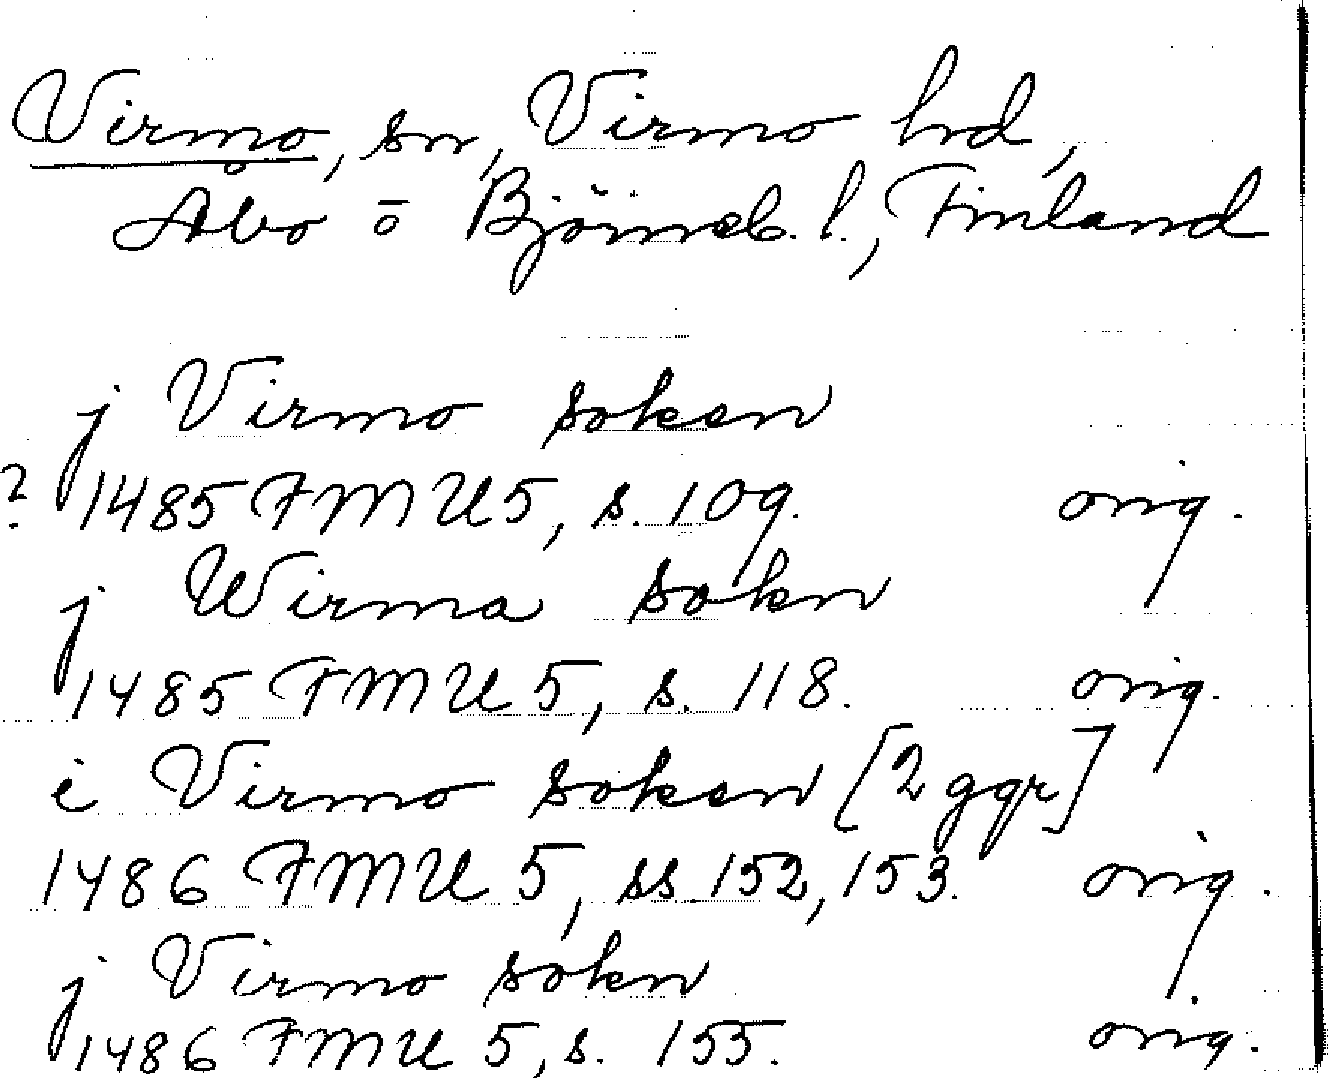 Virmo, sn, Virmo hrd,
Åbo o Björneb. l., Finland
j Virmo soken
? 1485 FMU 5, s. 109. orig.
j Wirma sokn
1485 FMU 5, s. 118. orig.
i Virmo soken [2 ggr]
1486 FMU 5, ss. 152, 153. orig.
j Virmo sokn
1486 FMU 5, s. 155. orig.